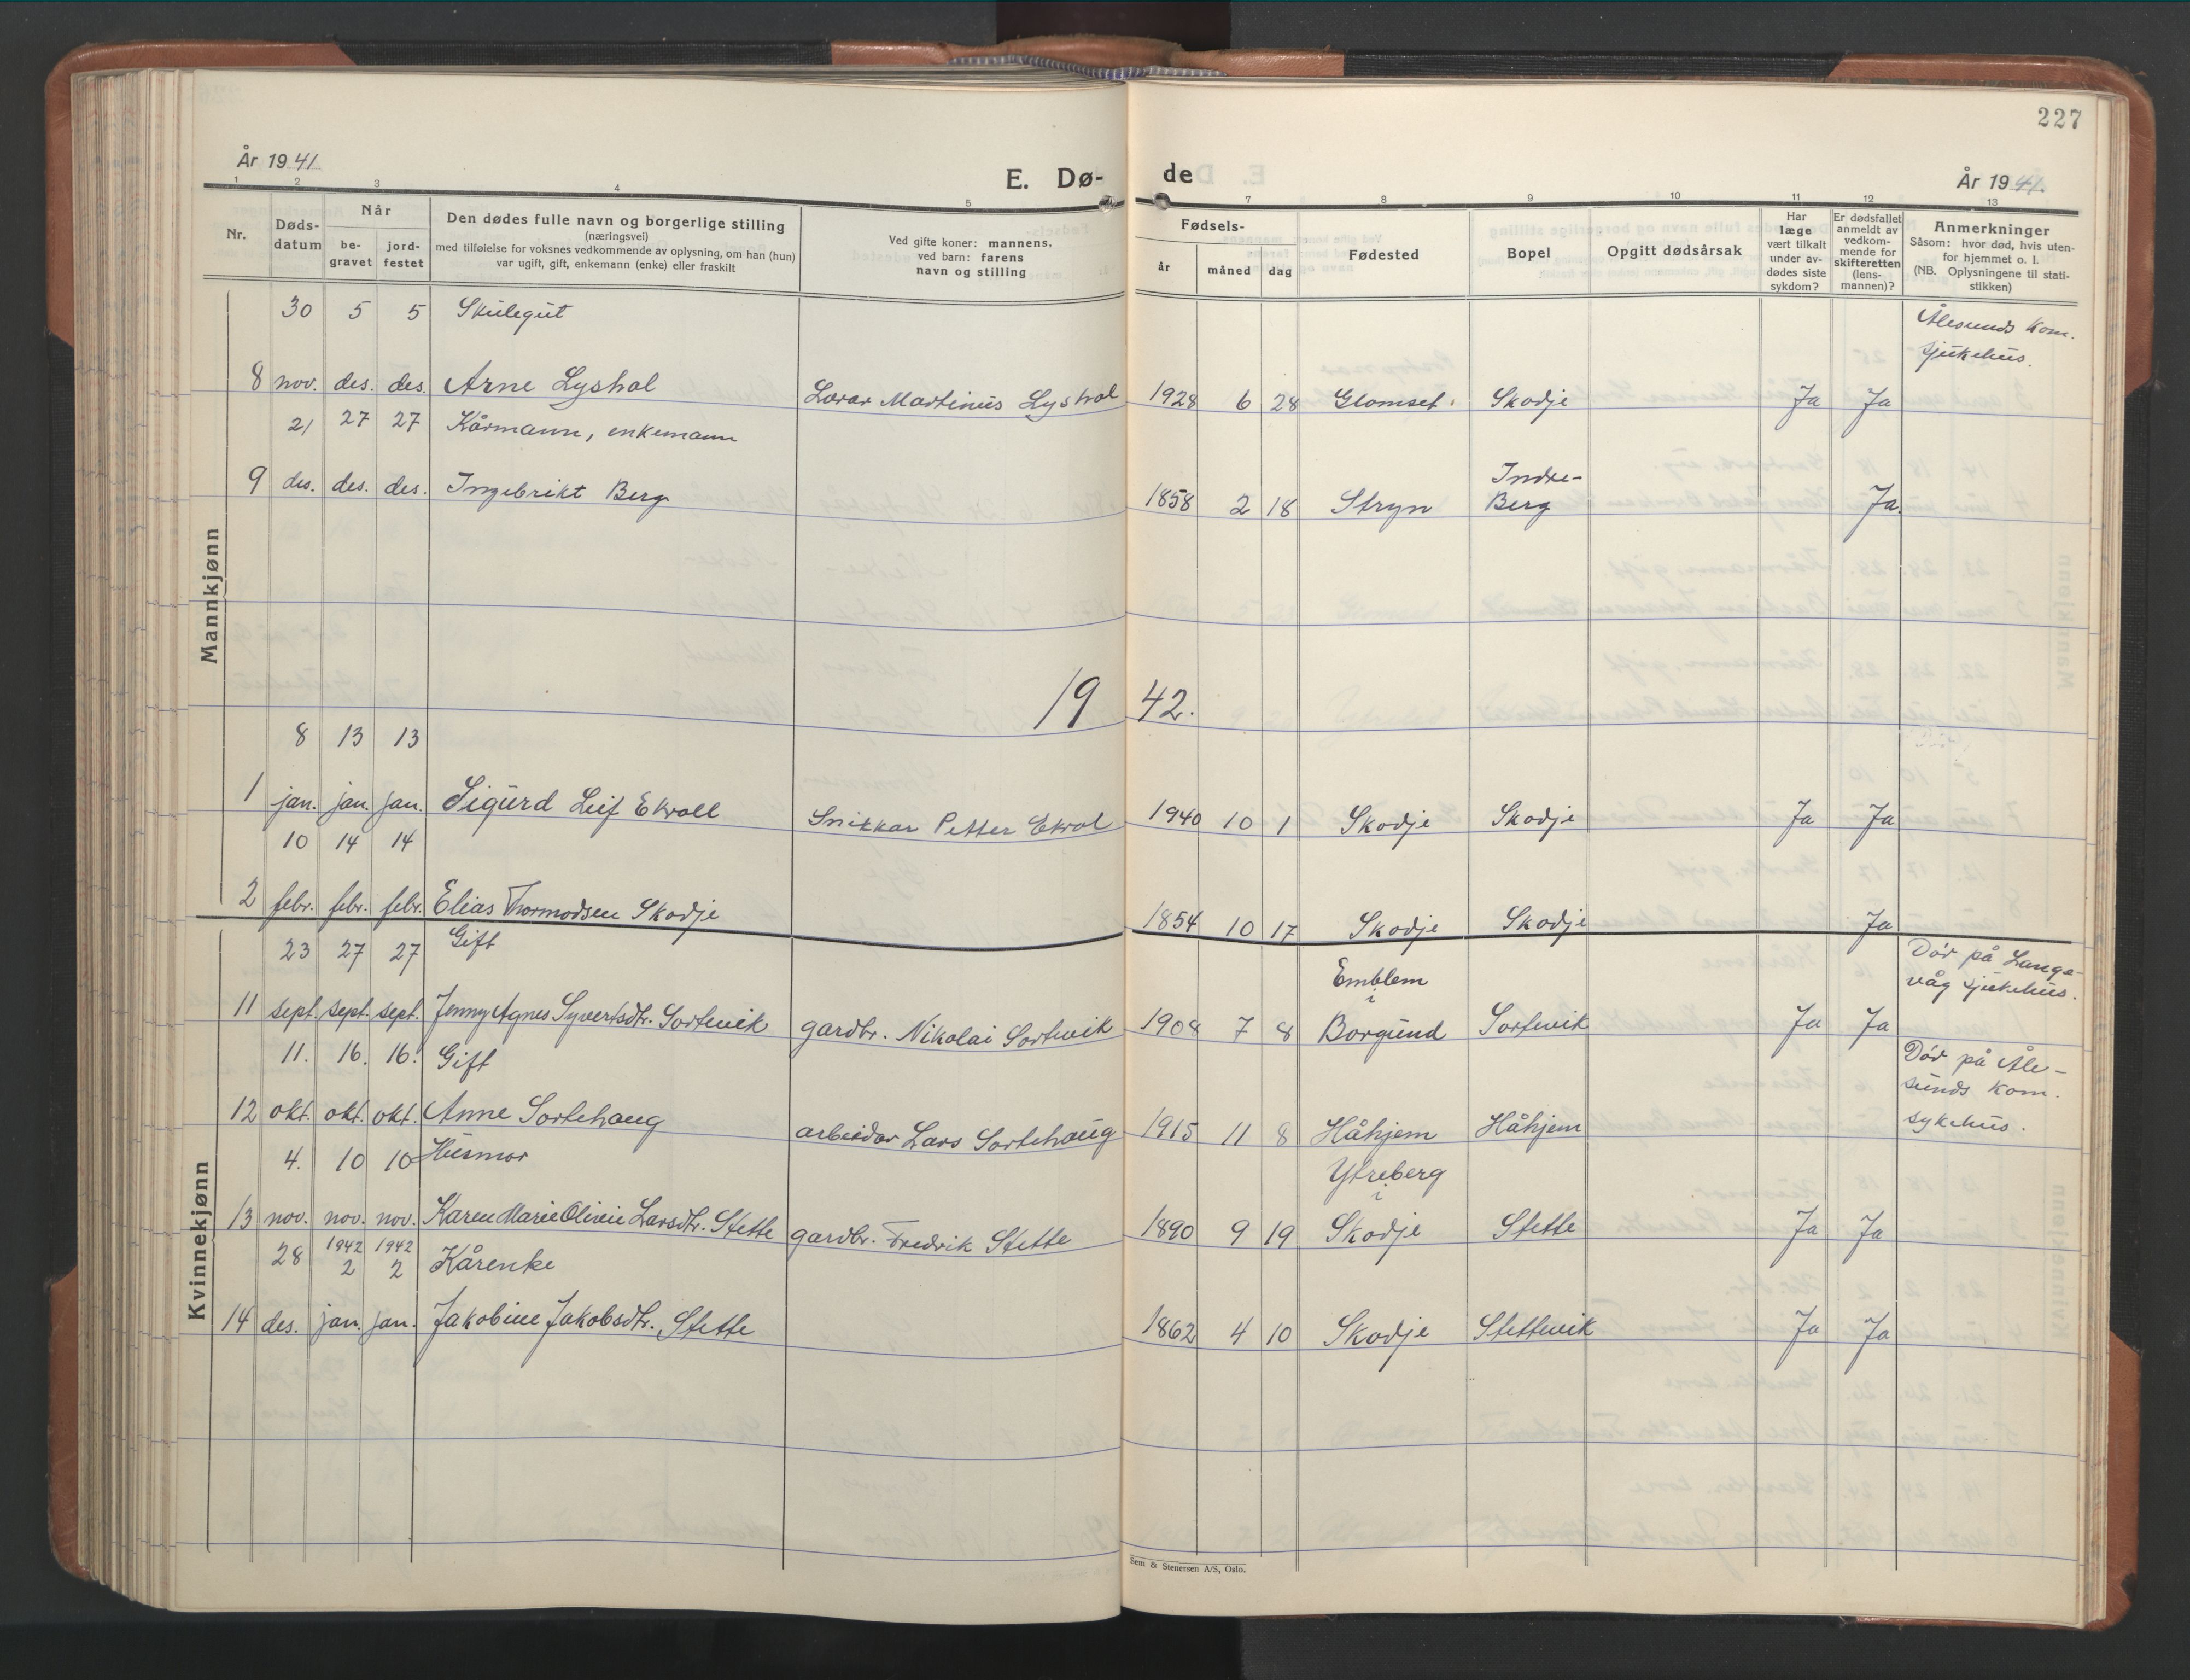 227
År 1941
E. Dø-
de
År 1941.
1 2 3 4 5 7 8 9 10 11 12 13
Nr.
Døds-
datum
Når
be-
gravet
jord-
festet
Den dødes fulle navn og borgerlige stilling
(næringsvei)
med tilføielse for voksnes vedkommende av oplysning, om han (hun)
var ugift, gift, enkemann (enke) eller fraskilt
Ved gifte koner: mannens,
ved barn: farens
navn og stilling
Fødsels-
år måned dag
Fødested
Bopel
Opgitt dødsårsak
Har
læge
vært tilkalt
under av-
dødes siste
sykdom?
Er dødsfallet
anmeldt av
vedkom-
mende for
skifteretten
(lens-
mannen)?
Anmerkninger
Såsom: hvor død, hvis uten-
for hjemmet o. l.
(NB. Oplysningene til stati-
stikken)
Mannkjønn
30 5 5 Skulegut
Ålesunds Kom.
sjukehus.
8 nov. des. des. Arne Lyshol Lærar Martinus Lyshol 1928 6 28 Glomset Skodje Ja Ja
21 27 27 Kårmann, enkemann
Indre-
9 des. des. des. Ingebrikt Berg 1858 2 18 Stryn Berg Ja.
1942.
8 13 13
1 jan. jan. jan. Sigurd Leif Ekroll Snikkar Petter Ekrol 1940 10 1 Skodje Skodje Ja Ja
10 14 14
2 febr. febr. febr. Elias Thormodsen Skodje 1854 10 17 Skodje Skodje Ja
Kvinnekjønn
23 27 27 Gift
Emblem
i
Død på Lange-
våg sjukehus.
11 sept. sept. sept. Jenny Agnes Syvertsdtr. Sortevik gardbr. Nikolai Sortevik 1908 7 8 Borgund Sortevik Ja Ja
11. 16. 16. Gift
Død på Åle-
sunds Kom.
sykehus.
12 okt. okt. okt. Anne Sortehaug arbeidar Lars Sortehaug 1915 11 8 Håhjem Håhjem
4. 10 10 Husmor
Ytreberg
i
13 nov. nov. nov. Karen Marie Olivie Larsdtr. Stette gardbr. Fredrik Stette 1890 9 19 Skodje Stette Ja Ja
1942 1942
28 2 2 Kårenke
14 des. jan. jan. Jakobine Jakobsdtr. Stette 1862 4 10 Skodje Stettevik Ja Ja
Sem & Stenersen A/S, Oslo.